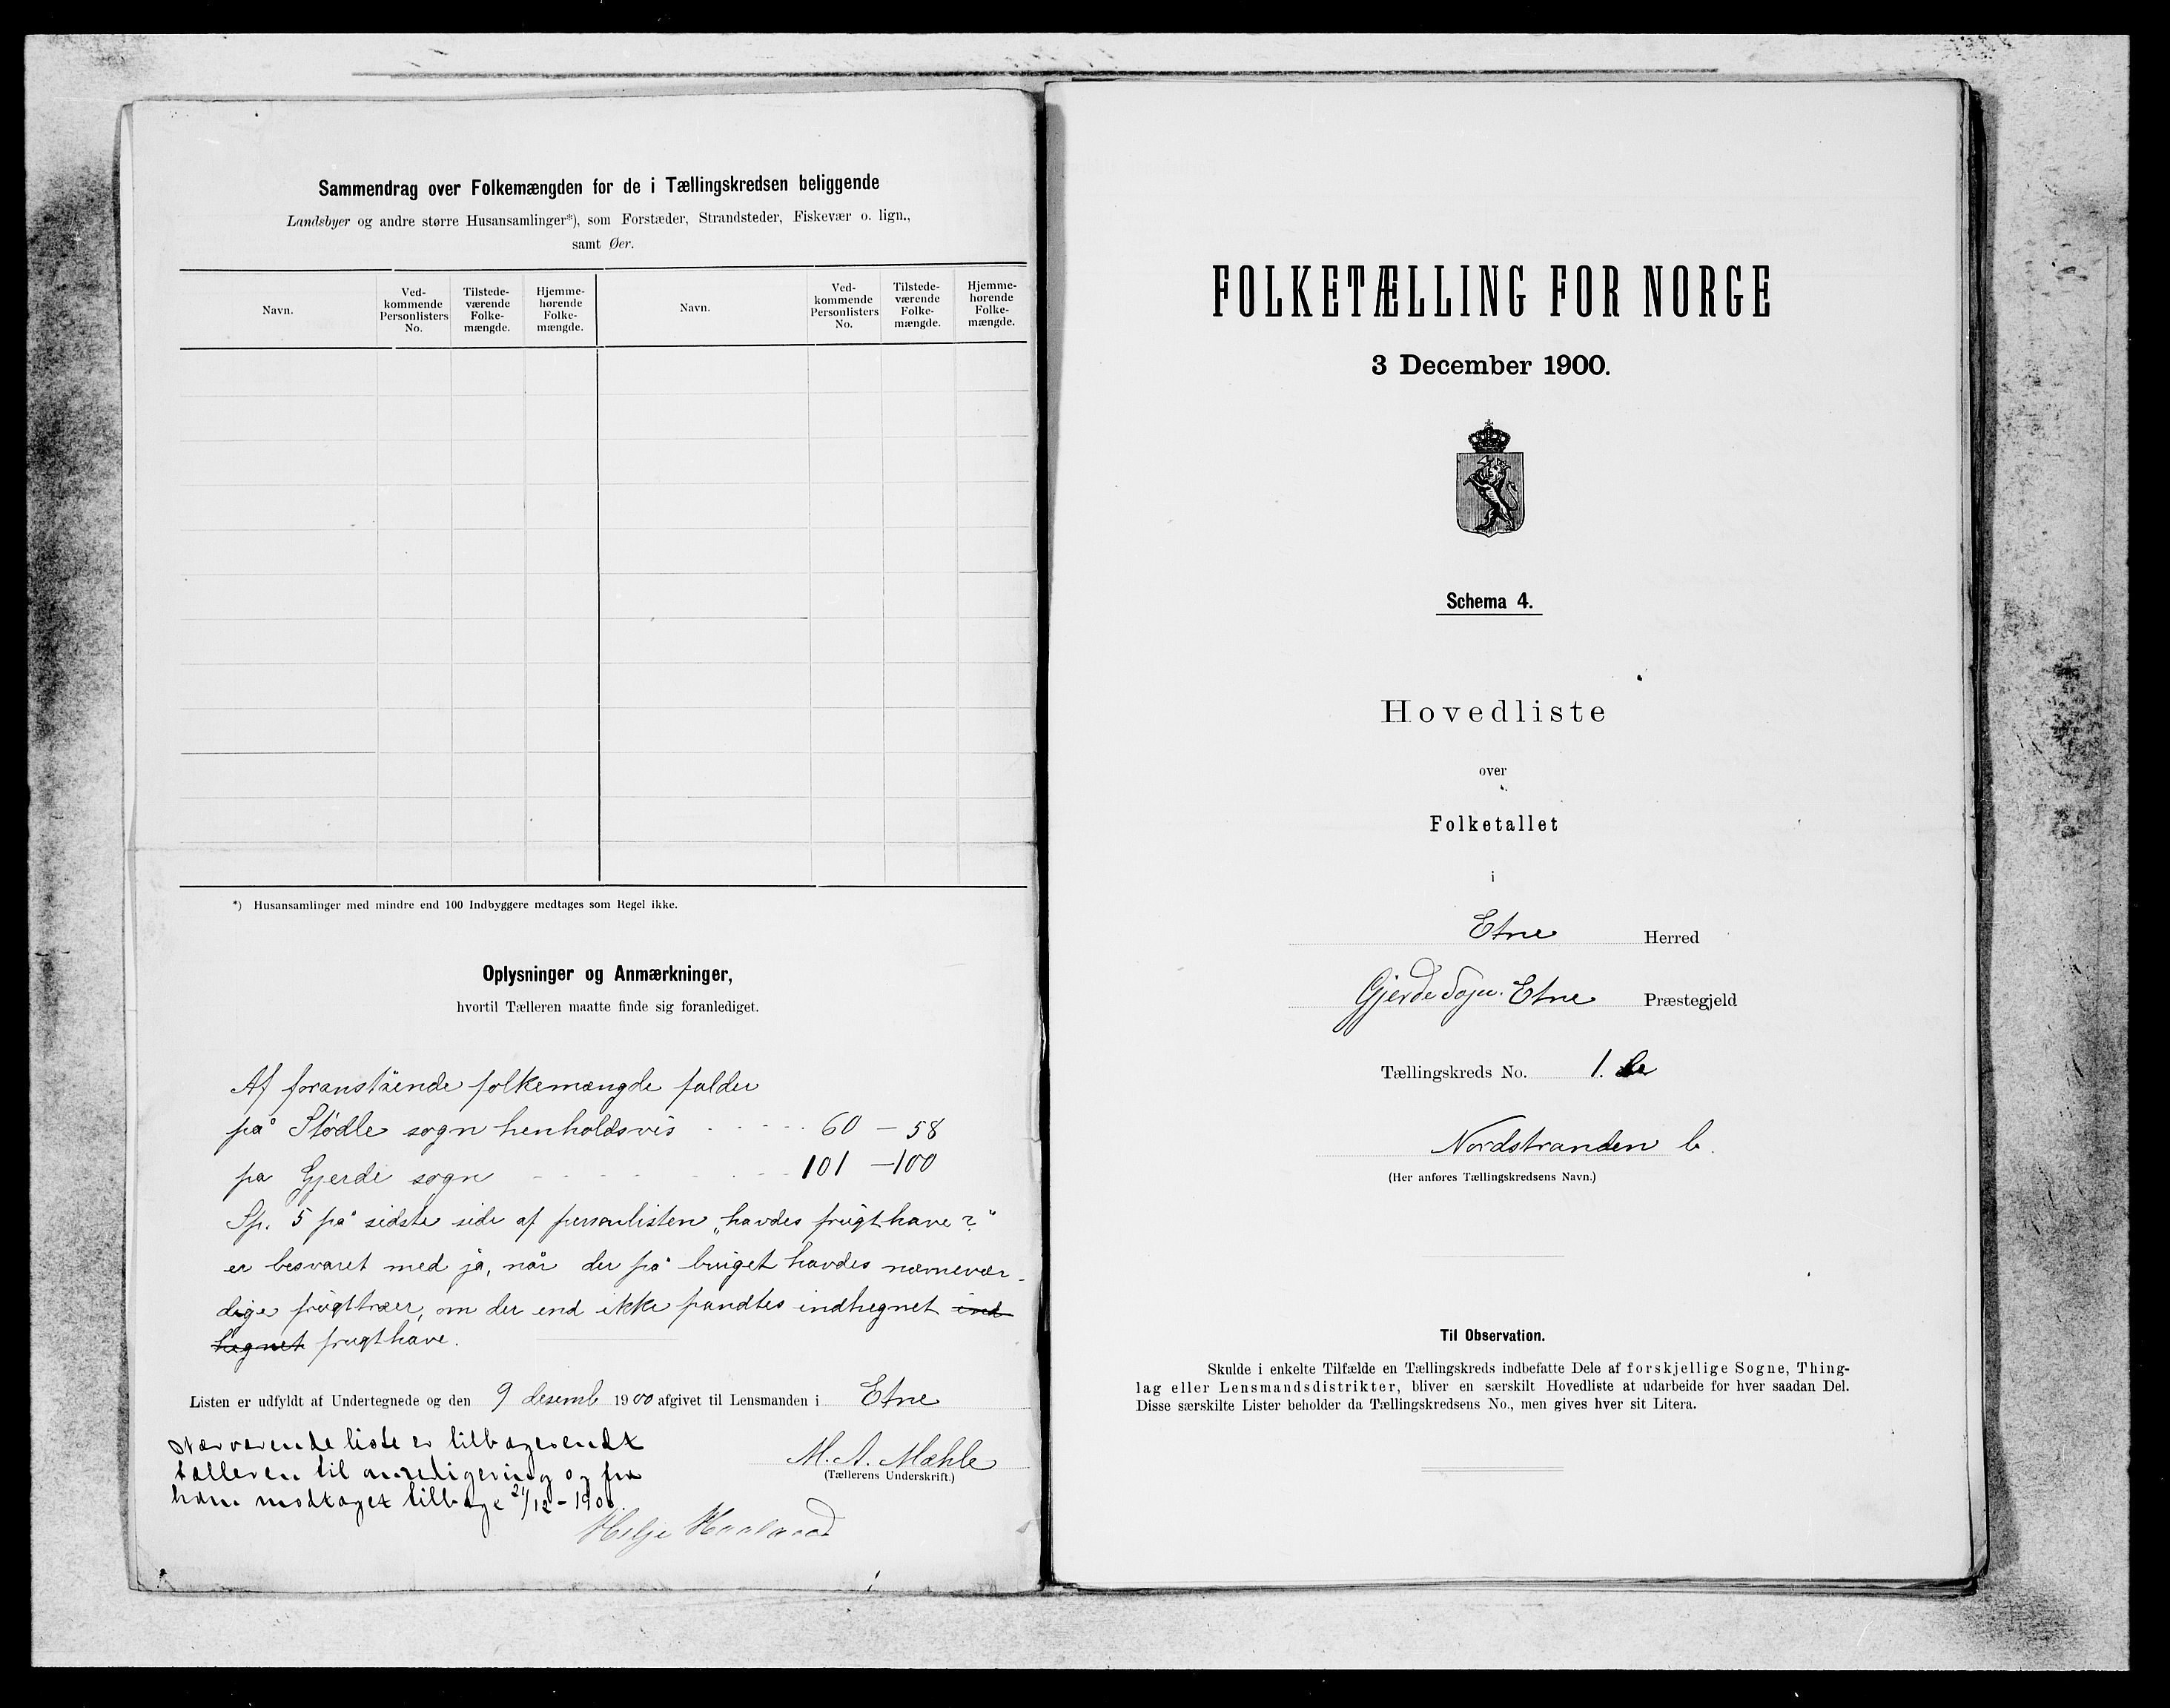 Sammendrag over Folkemængden for de i Tællingskredsen beliggende
Landsbyer og andre større Husansamlinger*), som Forstæder, Strandsteder, Fiskevær o. lign.,
samt Øer.
Navn.
Ved-
kommende
Personlisters
No.
Tilstede-
værende
Folke-
mængde.
Hjemme-
hørende
Folke-
mængde.
Navn.
Ved-
kommende
Personlisters
No.
Tilstede-
værende
Folke-
mængde.
Hjemme-
hørende
Folke-
mængde.
*) Husansamlinger med mindre end 100 Indbyggere medtages som Regel ikke.
Oplysninger og Anmærkninger,
hvortil Tælleren maatte finde sig foranlediget.
Af foranstående folkemængde falder
på Stødle sogn henholdsvis 60 – 58
på Gjerde sogn 101 – 100
Sp. 5 på sidste side af personlisten „havdes frugthave?“
er besvaret med ja, når der på bruget havdes nævnevær-
dige frugttræer, om der end ikke fandtes indhegnet ind
hegnet frugthave.
Listen er udfyldt af Undertegnede og den 9 desemb 1900 afgivet til Lensmanden i Etne
M. A. Mæhle
(Tællerens Underskrift.)
Nærværende liste er tilbagesendt
tælleren til omredigering og fra
ham modtaget tilbage 21/12 – 1900.
Helje Haaland
FOLKETÆLLING FOR NORGE
3 December 1900.
Schema 4.
Hovedliste
over
Folketallet
i
Etne Herred
Gjerde Sogn. Etne Præstegjeld
Tællingskreds No. 1.
Nordstranden b.
(Her anføres Tællingskredsens Navn.)
Til Observation.
Skulde i enkelte Tilfælde en Tællingskreds indbefatte Dele af forskjellige Sogne, Thing-
lag eller Lensmandsdistrikter, bliver en særskilt Hovedliste at udarbeide for hver saadan Del.
Disse særskilte Lister beholder da Tællingskredsens No., men gives hver sit Litera.